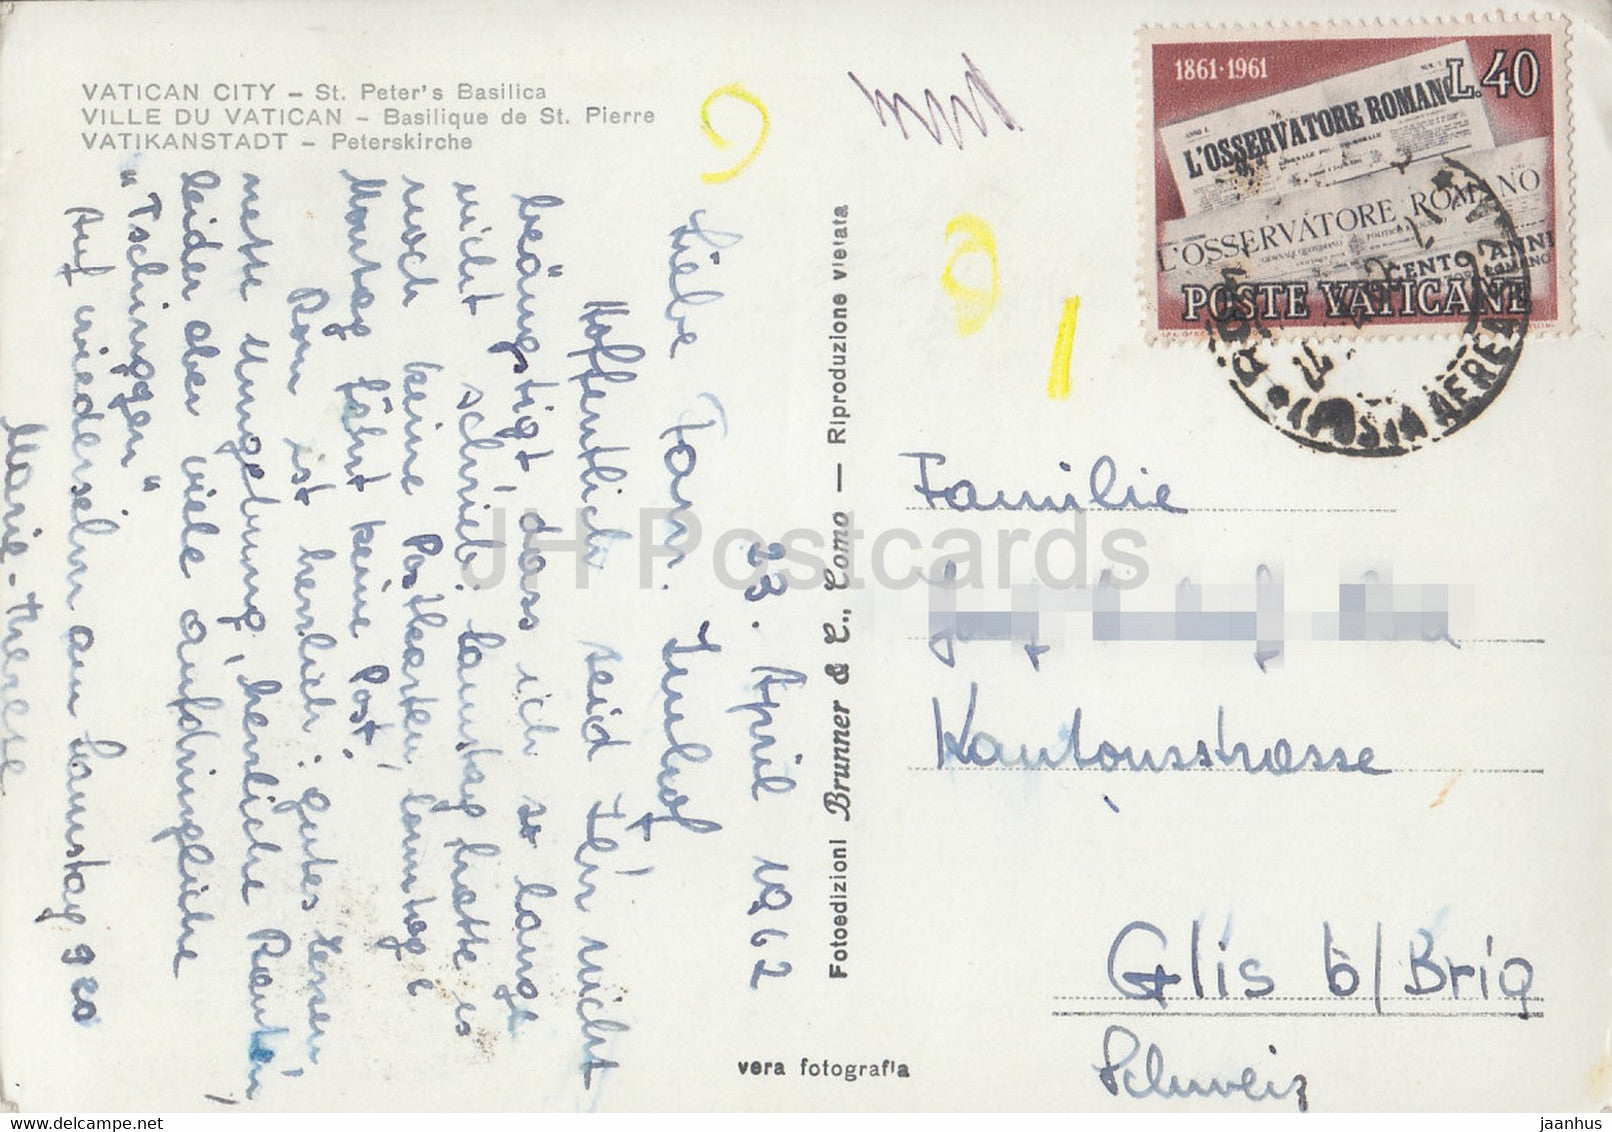 VATICAN CITY – St. Peter's Basilica
VILLE DU VATICAN – Basilique de St. Pierre
VATIKANSTADT – Peterskirche
23. April 1962
Liebe Fam. Imhof
Hoffentlich seid Ihr nicht
beängstigt, dass ich so lange
nicht schrieb. Samstag hatte es
noch keine Postkarten, Sonntag &
Montag fährt keine Post.
Rom ist herrlich: gutes Essen,
nette Umgebung, herrliche Bauten,
leider aber viele aufdringliche
"Tschinggen"
Auf wiedersehn am Samstag 920
Marie-Therese
Fotoedizioni Brunner & C., Como – Riproduzione vietata
vera fotografia
1861·1961
L.40
ANNO I.
L'OSSERVATORE ROMANO
L'OSSERVATORE ROMANO
CENTO ANNI
POSTE VATICANE
POSTA AEREA
Familie
Kantonsstrasse
Glis b/Brig
Schweiz
JH Postcards
jaanhus